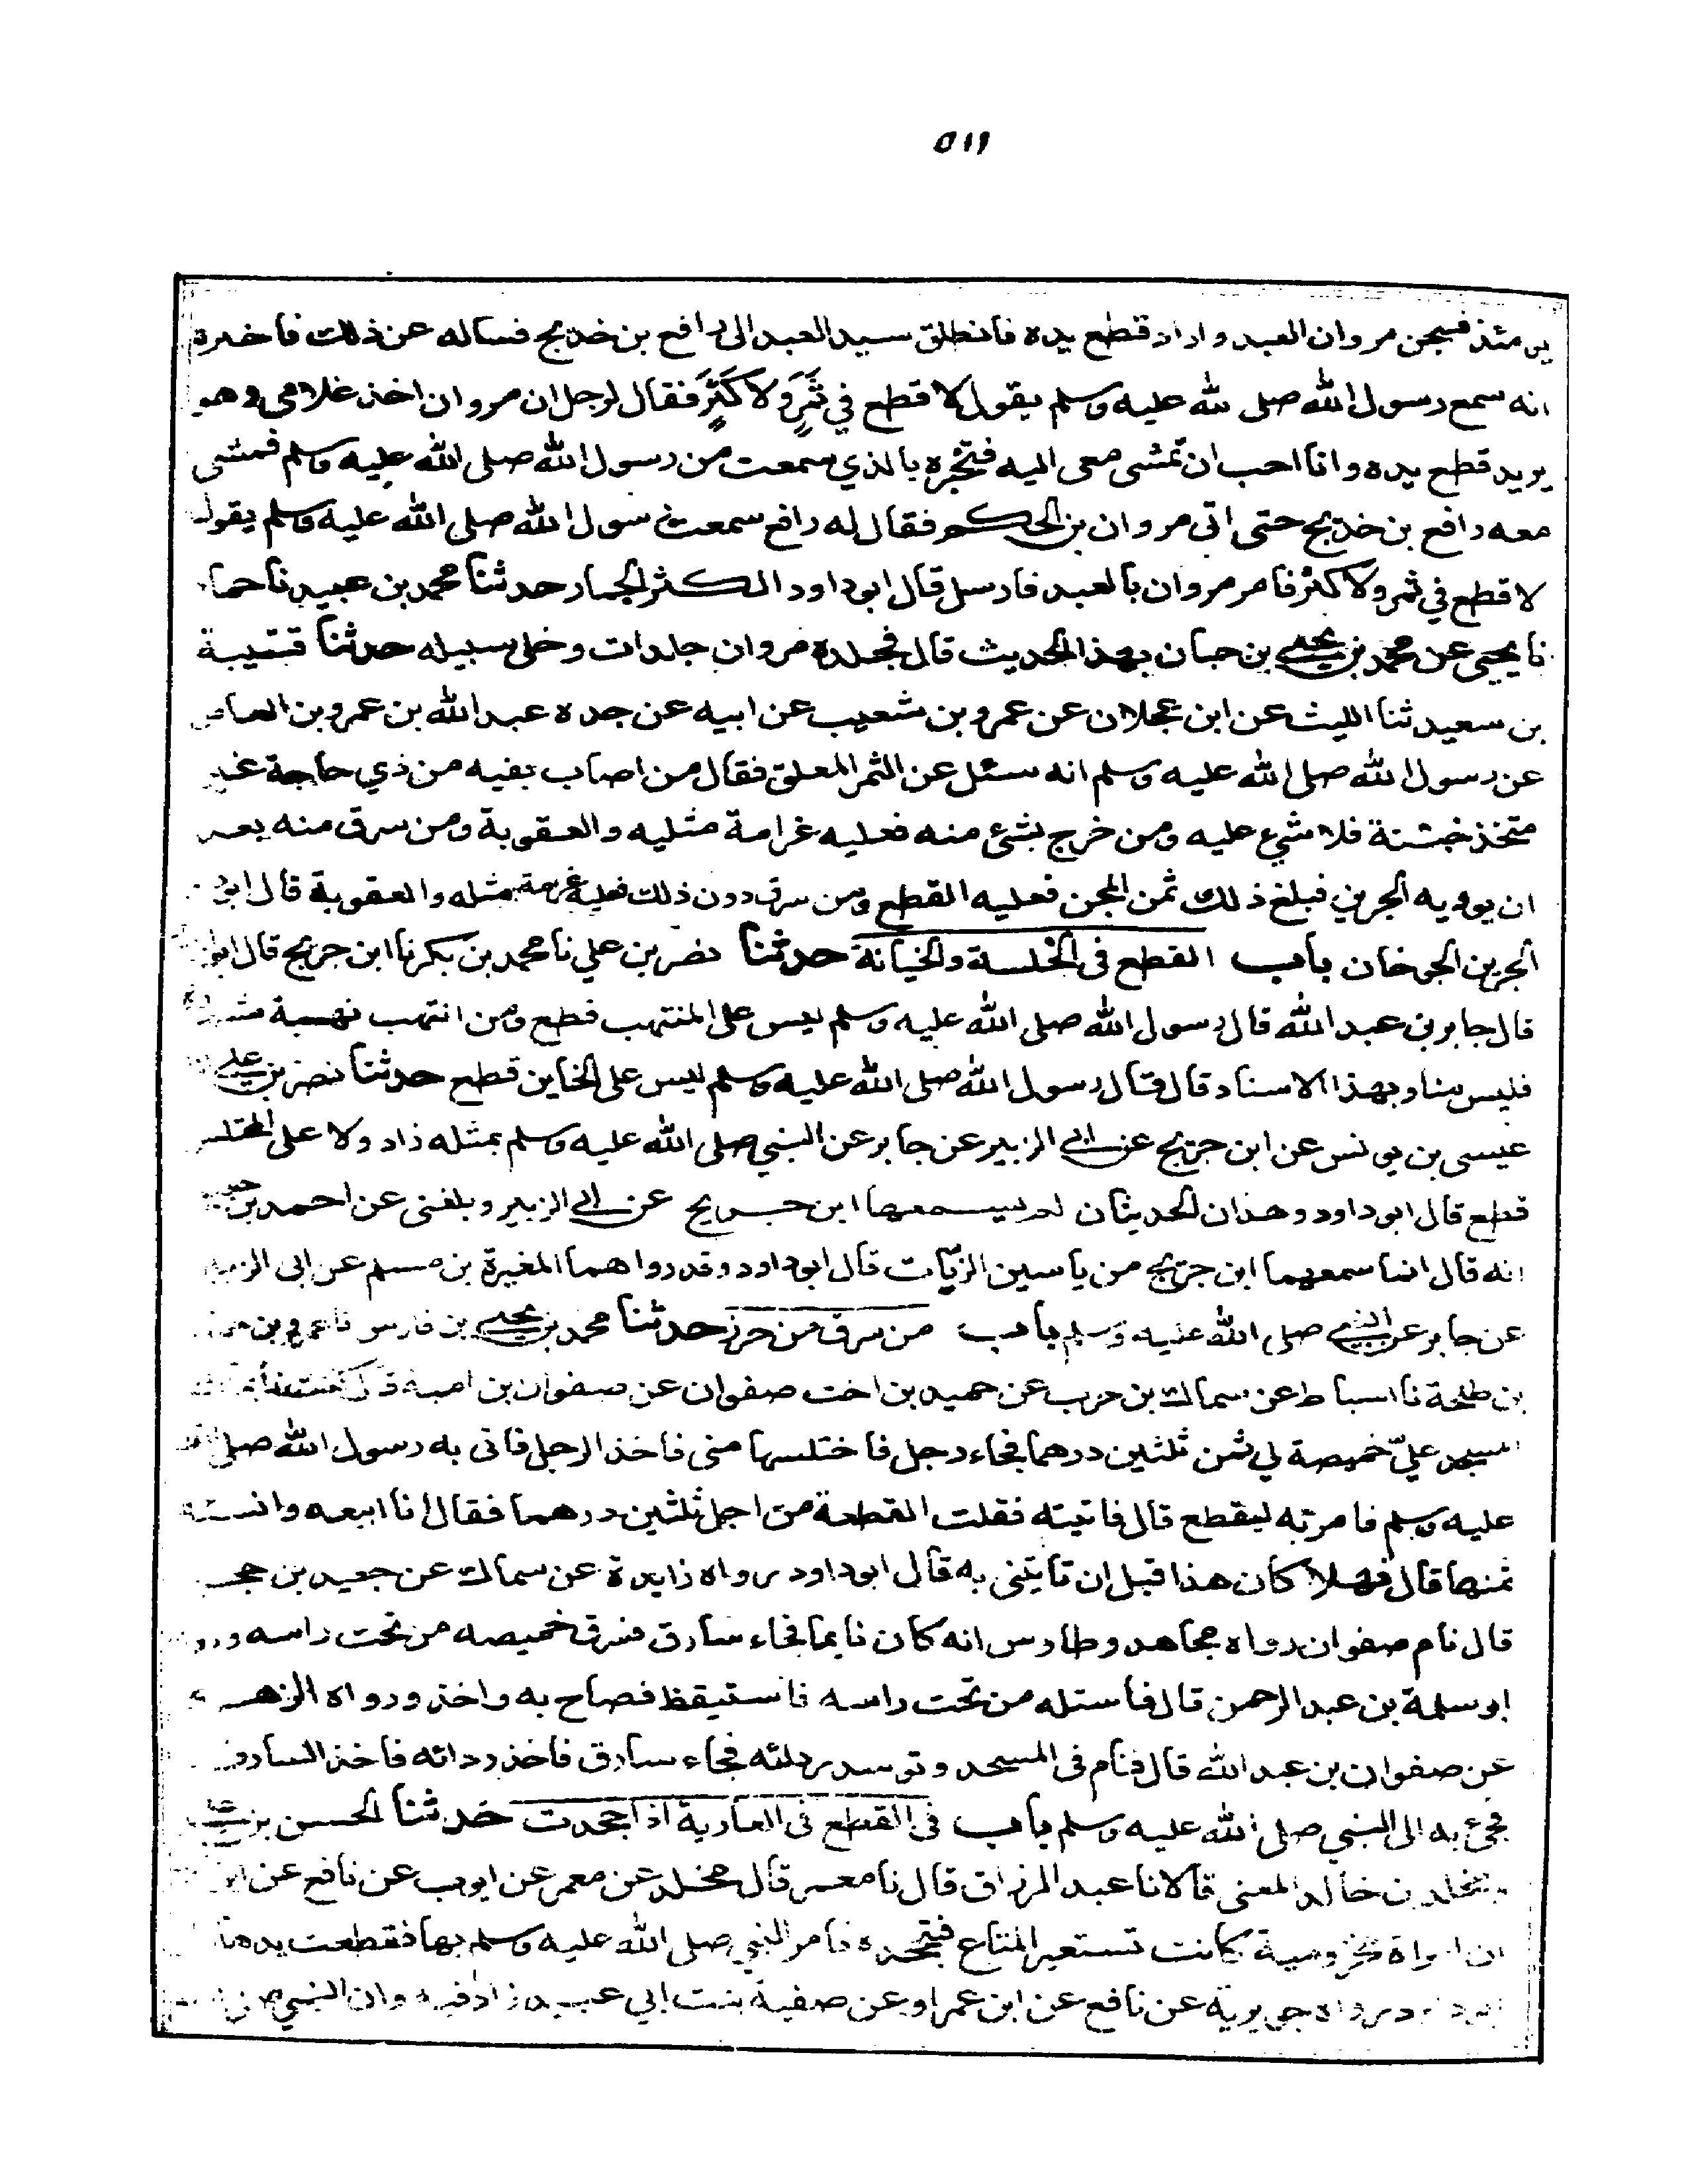 ٥١١
يومئذ فسجن مروان العبد واراد قطع يده فانطلق سيد العبد الى رافع بن خديج فساله عن ذلك فاخبره
انه سمع رسول الله صلى الله عليه وسلم يقول لا قطع في ثَمَرٍ وَلا كَثَرٍ فقال لرجل ان مروان اخذ غلامى وهو
يريد قطع يده وانا احب ان تمشى معى اليه فتخبره بالذي سمعت من رسول الله صلى الله عليه وسلم فمشى
معه رافع بن خديج حتى اتى مروان بن الحكم فقال له رافع سمعت رسول الله صلى الله عليه وسلم يقول
لا قطع في ثمر ولا كثر فامر مروان بالعبد فارسل قال ابو داود الكثر الجمار حدثنا محمد بن عبيد نا حماد
نا يحيى عن محمد بن يحيى بن حبان بهذا الحديث قال فجلده مروان جلدات وخلى سبيله حدثنا قتيبة
بن سعيد ثنا الليث عن ابن عجلان عن عمرو بن شعيب عن ابيه عن جده عبد الله بن عمرو بن العاص
عن رسول الله صلى الله عليه وسلم انه سئل عن الثمر المعلق فقال من اصاب بفيه من ذي حاجة غير
متخذ خبنة فلا شيء عليه ومن خرج بشئ منه فعليه غرامة مثليه والعقوبة ومن سرق منه بعد
ان يوويه الجرين فبلغ ذلك ثمن المجن فعليه القطع ومن سرق دون ذلك فعليه غرامة مثله والعقوبة قال ابو
الجرين الجوخان باب القطع فى الخلسة والخيانة حدثنا نصر بن علي نا محمد بن بكر نا ابن جريج قال ابو
قال جابر بن عبد الله قال رسول الله صلى الله عليه وسلم ليس على المنتهب قطع ومن انتهب نهبة
فليس منا وبهذا الاسناد قال قال رسول الله صلى الله عليه وسلم ليس على الخاين قطع حدثنا نصر بن علي
عيسى بن يونس عن ابن جريج عن ابي الزبير عن جابر عن النبي صلى الله عليه وسلم بمثله زاد ولا على المختلس
قطع قال ابو داود وهذان الحديثان لم يسمعهما ابن جريج عن ابي الزبير وبلغنى عن احمد بن حنبل
انه قال انما سمعهما ابن جريج من ياسين الزيّات قال ابو داود وقد رواهما المغيرة بن مسلم عن ابى الزبير
عن جابر عن النبي صلى الله عليه وسلم باب من سرق من حرز حدثنا محمد بن يحيى بن فارس نا عمرو بن
بن طلحة نا اسباط عن سماك بن حرب عن حميد بن اخت صفوان عن صفوان بن امية
المسجد عليّ خميصة لي ثمن ثلثين درهما فجاء رجل فاختلسها منى فاخذ الرجل فاتى به رسول الله صلى
عليه وسلم فامر به ليقطع قال فاتيته فقلت القطعة من اجل ثلثين درهما فقال انا ابيعه وانسئه
ثمنها قال فهلا كان هذا قبل ان تاتينى به قال ابو داود رواه زايدة عن سماك عن جعيد بن حجر
قال نام صفوان رواه مجاهد وطاوس انه كان نايما فجاء سارق فسرق خميصه من تحت راسه
ابو سلمة بن عبد الرحمن قال فاستله من تحت راسه فاستيقظ فصاح به واخذ ورواه الزهرى
عن صفوان بن عبد الله قال فنام فى المسجد وتوسد ردائه فجاء سارق فاخذ ردائه فاخذ السارق
فجئ به الى النبي صلى الله عليه وسلم باب فى القطع فى العارية اذا جحدت حدثنا الحسن بن علي
ومخلد بن خالد المعنى قالا نا عبد الرزاق قال نا معمر قال مخلد عن معمر عن ايوب عن نافع عن ابن
ان امراة مخزومية كانت تستعير المتاع فتجحده فامر النبي صلى الله عليه وسلم بها فقطعت يدها
ابو داود رواه جويرية عن نافع عن ابن عمر او عن صفية بنت ابي عبيد زاد فيه وان النبي